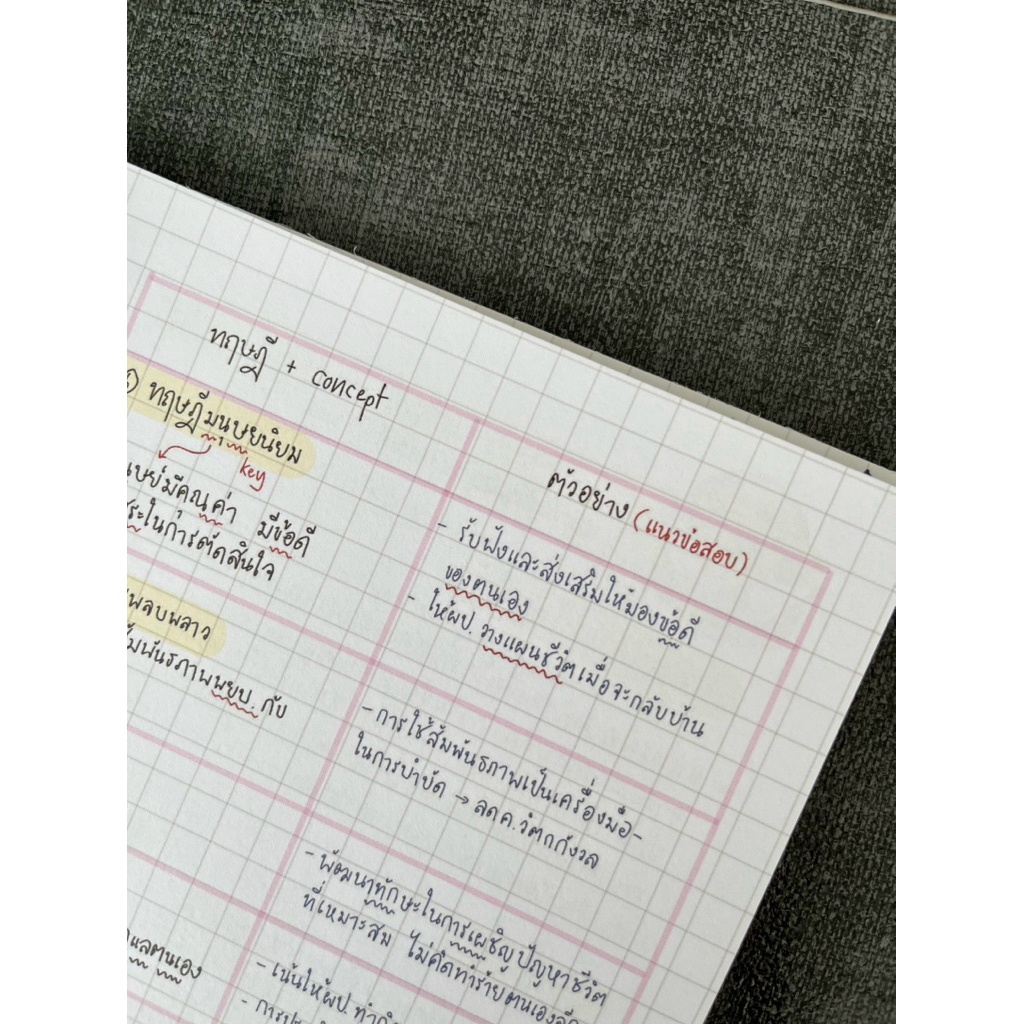 ทฤษฎี + concept
ทฤษฎีมนุษยนิยม
key
มีคุณค่า มีข้อดี
ในการตัดสินใจ
เพลบพลาว
สัมพันธภาพพยบ. กับ
แลตนเอง
ตัวอย่าง (แนวข้อสอบ)
- รับฟังและส่งเสริมให้มองข้อดี
ของตนเอง
- ให้ผป. วางแผนชีวิตเมื่อจะกลับบ้าน
- การใช้สัมพันธภาพเป็นเครื่องมือ-
ในการบำบัด → ลดค.วิตกกังวล
- พัฒนาทักษะในการเผชิญปัญหาชีวิต
ที่เหมาะสม ไม่คิดทำร้ายตนเองอีก
- เน้นให้ผป.